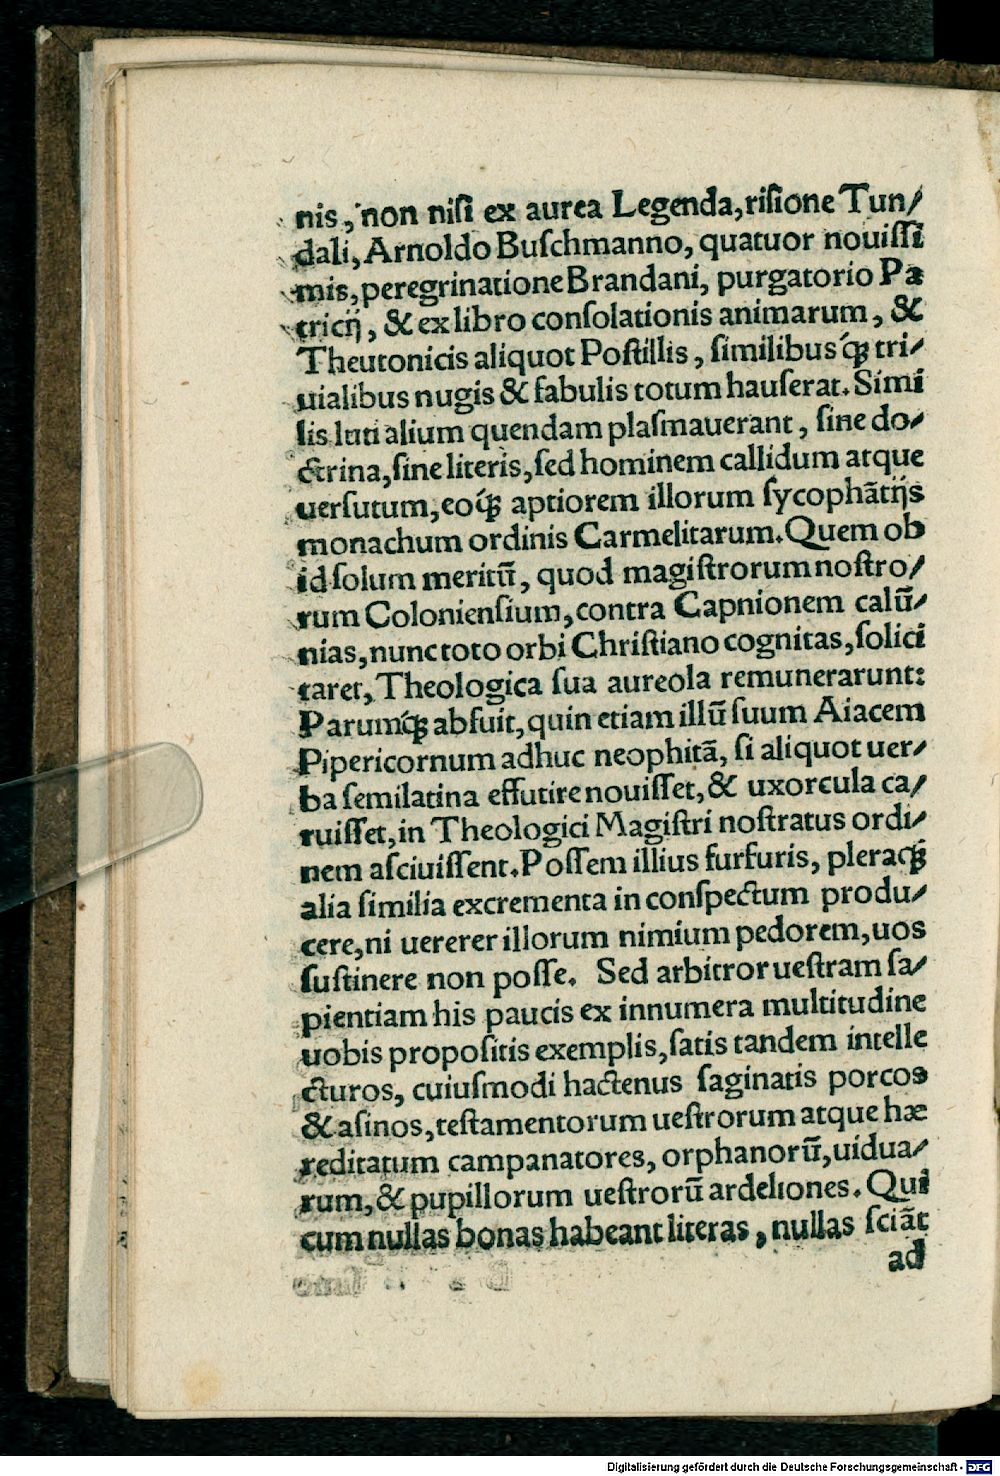 nis, non niſi ex aurea Legenda, riſione Tun/
dali, Arnoldo Buſchmanno, quatuor nouiſſi
mis, peregrinatione Brandani, purgatorio Pa
tricij, & ex libro conſolationis animarum, &
Theutonicis aliquot Poſtillis, ſimilibusq́ꝫ tri/
uialibus nugis & fabulis totum hauſerat. Simi
lis luti alium quendam plaſmauerant, ſine do/
ctrina, ſine literis, ſed hominem callidum atque
uerſutum, eoq́ꝫ aptiorem illorum ſycophãtijs
monachum ordinis Carmelitarum. Quem ob
id ſolum meritũ, quod magiſtrorum noſtro/
rum Colonienſium, contra Capnionem calũ/
nias, nunc toto orbi Chriſtiano cognitas, ſolici
taret, Theologica ſua aureola remunerarunt:
Parumq́ꝫ abfuit, quin etiam illũ ſuum Aiacem
Pipericornum adhuc neophitã, ſi aliquot uer/
ba ſemilatina effutire nouiſſet, & uxorcula ca/
ruiſſet, in Theologici Magiſtri noſtratus ordi/
nem aſciuiſſent. Poſſem illius furfuris, pleraq́ꝫ
alia ſimilia excrementa in conſpectum produ/
cere, ni uererer illorum nimium pedorem, uos
ſuſtinere non poſſe. Sed arbitror ueſtram ſa/
pientiam his paucis ex innumera multitudine
uobis propoſitis exemplis, ſatis tandem intelle
cturos, cuiuſmodi hactenus ſaginatis porcos
& aſinos, teſtamentorum ueſtrorum atque hæ
reditatum campanatores, orphanorũ, uidua/
rum, & pupillorum ueſtrorũ ardeliones. Qui
cum nullas bonas habeant literas, nullas ſciãt
ad
Digitalisierung gefördert durch die Deutsche Forschungsgemeinschaft - DFG